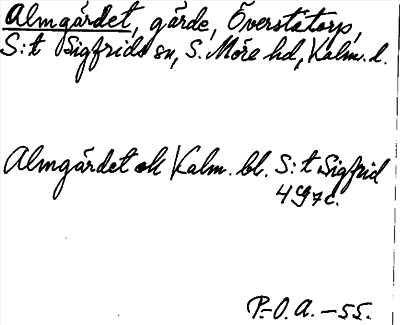 Almgärdet, gärde, Överstatorp,
S:t Sigfrids sn, S. Möre hd, Kalm. l.
Almgärdet ek Kalm. bl. S:t Sigfrid
4 9 7 c.
P.-O. A. - 55.